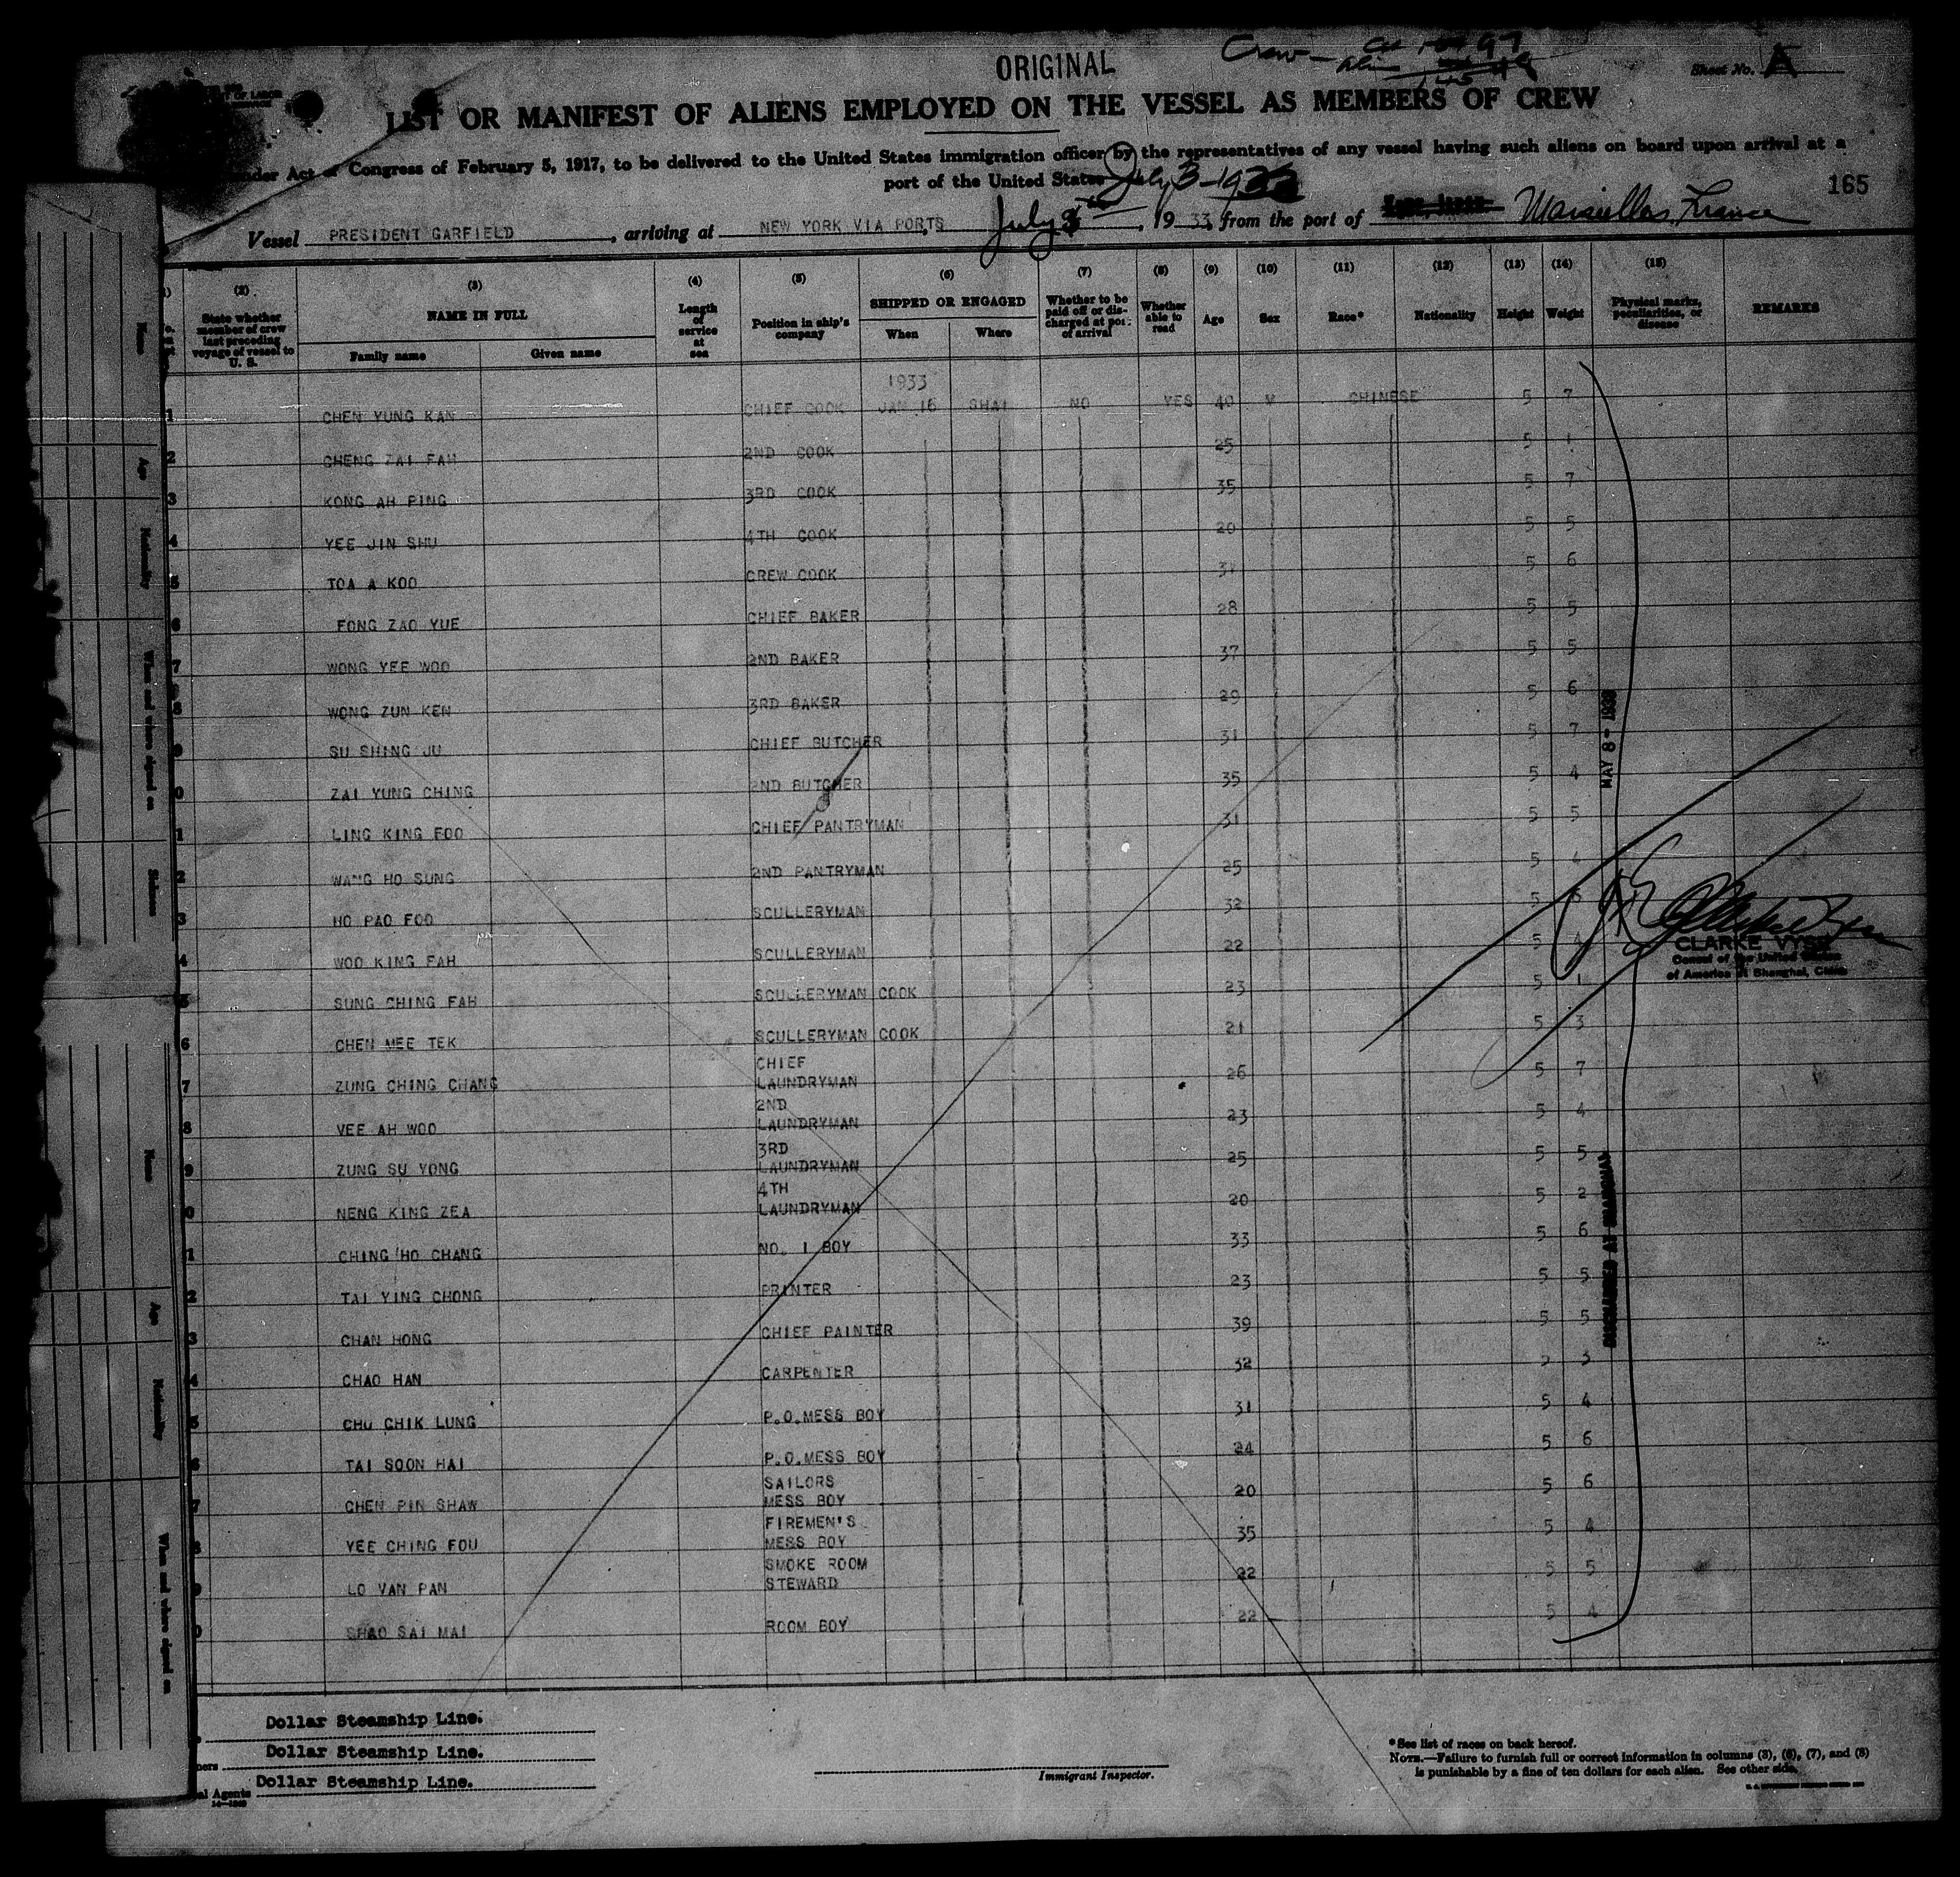 ORIGINAL
Crew-
Sheet No. A
T OF LABOR
LIST OR MANIFEST OF ALIENS EMPLOYED ON THE VESSEL AS MEMBERS OF CREW
under Act of Congress of February 5, 1917, to be delivered to the United States immigration officer by the representatives of any vessel having such aliens on board upon arrival at a
port of the United States July 3-1933
165
Vessel PRESIDENT GARFIELD, arriving at NEW YORK VIA PORTS July 3, 1933, from the port of Marseilles, France
(2) (3) (4) (5) (6) (7) (8) (9) (10) (11) (12) (13) (14) (15)
State whether member of crew last preceding voyage of vessel to U. S.
NAME IN FULL
Family name Given name
Length of service at sea
Position in ship's company
SHIPPED OR ENGAGED
When Where
Whether to be paid off or discharged at port of arrival
Whether able to read
Age Sex Race* Nationality Height Weight
Physical marks, peculiarities, or disease
REMARKS
1933
1 CHEN YUNG KAN CHIEF COOK JAN 16 SHAI NO YES 40 M CHINESE 5 7
2 CHENG ZAI FAH 2ND COOK 25 5 1
3 KONG AH PING 3RD COOK 35 5 7
4 YEE JIN SHU 4TH COOK 20 5 5
5 TOA A KOO CREW COOK 31 5 6
6 FONG ZAO YUE CHIEF BAKER 28 5 5
7 WONG YEE WOO 2ND BAKER 37 5 5
8 WONG ZUN KEN 3RD BAKER 29 5 6
9 SU SHING JU CHIEF BUTCHER 31 5 7
0 ZAI YUNG CHING 2ND BUTCHER 35 5 4
1 LING KING FOO CHIEF PANTRYMAN 31 5 5
2 WANG HO SUNG 2ND PANTRYMAN 25 5 4
3 HO PAO FOO SCULLERYMAN 32 5
4 WOO KING FAH SCULLERYMAN 22 5 4
5 SUNG CHING FAH SCULLERYMAN COOK 23 5 1
6 CHEN MEE TEK SCULLERYMAN COOK 21 5 3
7 ZUNG CHING CHANG CHIEF LAUNDRYMAN 26 5 7
8 VEE AH WOO 2ND LAUNDRYMAN 23 5 4
9 ZUNG SU YONG 3RD LAUNDRYMAN 25 5 5
0 NENG KING ZEA 4TH LAUNDRYMAN 20 5 2
1 CHING HO CHANG NO. 1 BOY 33 5 6
2 TAI YING CHONG PRINTER 23 5 5
3 CHAN HONG CHIEF PAINTER 39 5 5
4 CHAO HAN CARPENTER 32 5 3
5 CHU CHIK LUNG P.O.MESS BOY 31 5 4
6 TAI SOON HAI P.O.MESS BOY 24 5 6
7 CHEN PIN SHAW SAILORS MESS BOY 20 5 6
8 YEE CHING FOU FIREMEN'S MESS BOY 35 5 4
9 LO VAN PAN SMOKE ROOM STEWARD 22 5 5
0 SHAO SAI MAI ROOM BOY 22 5 4
MAY 8 - 1933
CLARKE VYSE
Consul of the United States
of America at Shanghai, China
AT SHANGHAI
Name
Age
Nationality
When and where signed on
Name
Age
Nationality
When and where signed on
Dollar Steamship Line.
Dollar Steamship Line.
Dollar Steamship Line.
al Agents
Immigrant Inspector.
*See list of races on back hereof.
NOTE.—Failure to furnish full or correct information in columns (3), (6), (7), and (8)
is punishable by a fine of ten dollars for each alien. See other side.